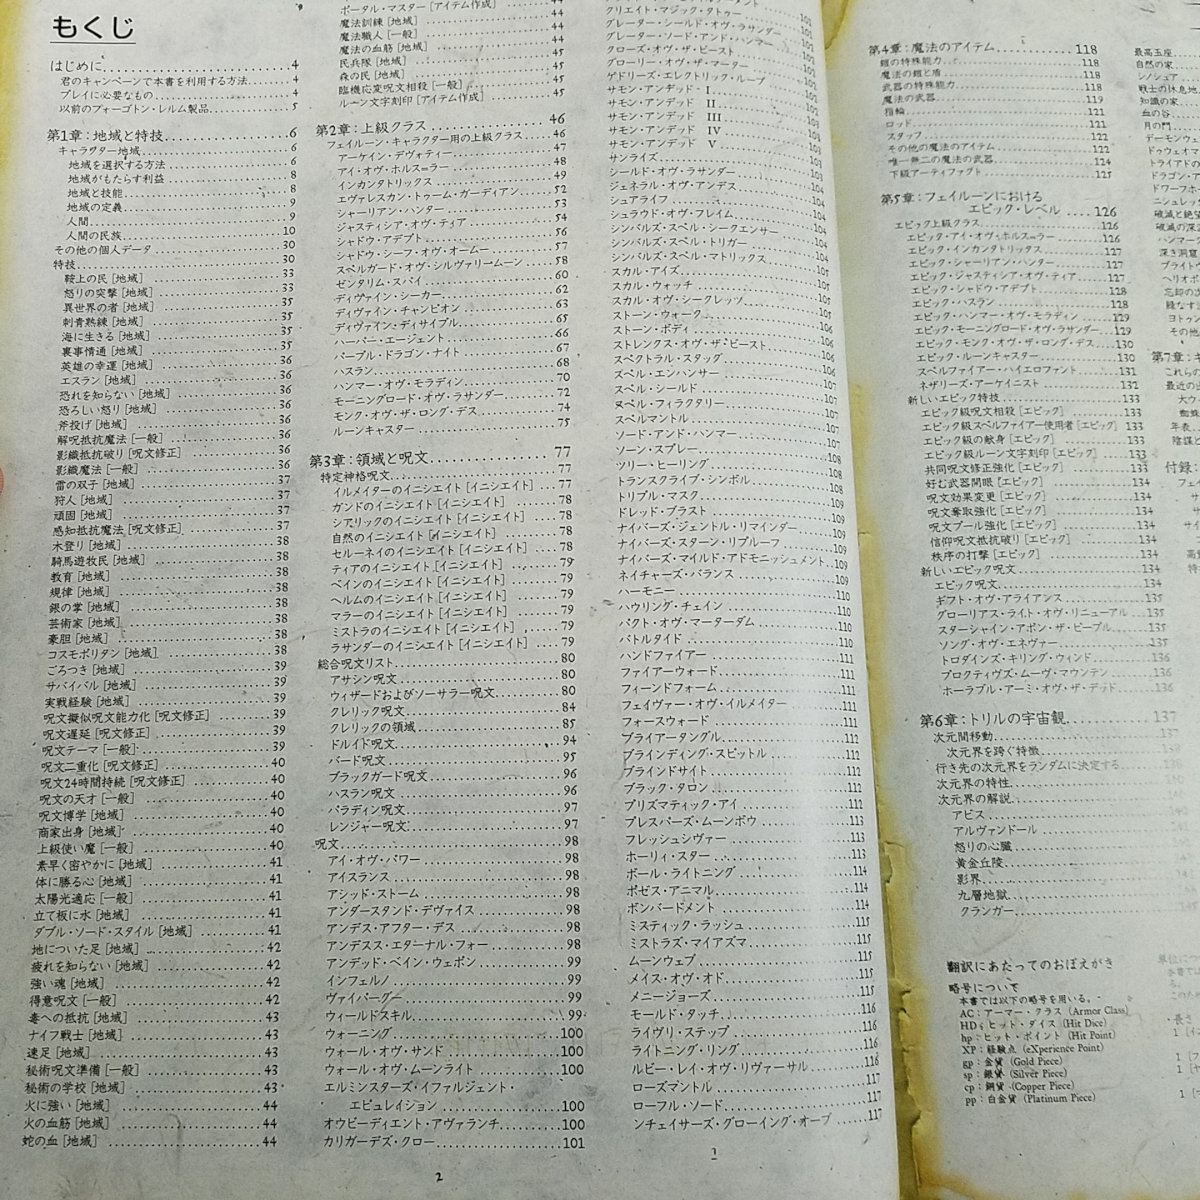 もくじ
はじめに 4
君のキャンペーンで本書を利用する方法 4
プレイに必要なもの 4
以前のフォーゴトン・レルム製品 5
第1章：地域と特技 6
キャラクター地域 6
地域を選択する方法 6
地域がもたらす利益 8
地域と技能 8
地域の定義 9
人間 9
人間の民族 10
その他の個人データ 30
特技 30
鞍上の民 [地域] 33
怒りの突撃 [地域] 33
異世界の者 [地域] 35
刺青熟練 [地域] 35
海に生きる [地域] 35
裏事情通 [地域] 35
英雄の幸運 [地域] 36
エスラン [地域] 36
恐れを知らない [地域] 36
恐ろしい怒り [地域] 36
斧投げ [地域] 36
解呪抵抗魔法 [一般] 36
影織抵抗破り [呪文修正] 36
影織魔法 [一般] 36
雷の双子 [地域] 37
狩人 [地域] 37
頑固 [地域] 37
感知抵抗魔法 [呪文修正] 37
木登り [地域] 38
騎馬遊牧民 [地域] 38
教育 [地域] 38
規律 [地域] 38
銀の掌 [地域] 38
芸術家 [地域] 38
豪胆 [地域] 38
コスモポリタン [地域] 38
ごろつき [地域] 39
サバイバル [地域] 39
実戦経験 [地域] 39
呪文擬似呪文能力化 [呪文修正] 39
呪文遅延 [呪文修正] 39
呪文テーマ [一般] 39
呪文二重化 [呪文修正] 40
呪文24時間持続 [呪文修正] 40
呪文の天才 [一般] 40
呪文博学 [地域] 40
商家出身 [地域] 40
上級使い魔 [一般] 40
素早く密やかに [地域] 41
体に勝る心 [地域] 41
太陽光適応 [一般] 41
立て板に水 [地域] 41
ダブル・ソード・スタイル [地域] 41
地についた足 [地域] 42
疲れを知らない [地域] 42
強い魂 [地域] 42
得意呪文 [一般] 42
毒への抵抗 [地域] 43
ナイフ戦士 [地域] 43
速足 [地域] 43
秘術呪文準備 [一般] 43
秘術の学校 [地域] 43
火に強い [地域] 44
火の血筋 [地域] 44
蛇の血 [地域] 44
ポータル・マスター [アイテム作成] 44
魔法訓練 [地域] 44
魔法職人 [一般] 44
魔法の血筋 [地域] 45
民兵隊 [地域] 45
森の民 [地域] 45
臨機応変呪文相殺 [一般] 45
ルーン文字刻印 [アイテム作成] 45
第2章：上級クラス 46
フェイルーン・キャラクター用の上級クラス 46
アーケイン・デヴォティー 47
アイ・オヴ・ホルス=ラー 48
インカンタトリックス 49
エヴァレスカン・トゥーム・ガーディアン 52
シャーリアン・ハンター 53
ジャスティシア・オヴ・ティア 54
シャドウ・アデプト 56
シャドウ・シーフ・オヴ・オームー 57
スペルガード・オヴ・シルヴァリームーン 58
ゼンタリム・スパイ 60
ディヴァイン・シーカー 62
ディヴァイン・チャンピオン 63
ディヴァイン・ディサイプル 65
ハーパー・エージェント 66
パープル・ドラゴン・ナイト 67
ハスラン 68
ハンマー・オヴ・モラディン 70
モーニングロード・オヴ・ラサンダー 72
モンク・オヴ・ザ・ロング・デス 74
ルーンキャスター 75
第3章：領域と呪文 77
特定神格呪文 77
イルメイターのイニシエイト [イニシエイト] 77
ガンドのイニシエイト [イニシエイト] 78
シアリックのイニシエイト [イニシエイト] 78
自然のイニシエイト [イニシエイト] 78
セルーネイのイニシエイト [イニシエイト] 78
ティアのイニシエイト [イニシエイト] 79
ベインのイニシエイト [イニシエイト] 79
ヘルムのイニシエイト [イニシエイト] 79
マラーのイニシエイト [イニシエイト] 79
ミストラのイニシエイト [イニシエイト] 79
ラサンダーのイニシエイト [イニシエイト] 79
総合呪文リスト 80
アサシン呪文 80
ウィザードおよびソーサラー呪文 80
クレリック呪文 84
クレリックの領域 85
ドルイド呪文 94
バード呪文 95
ブラックガード呪文 96
ハスラン呪文 96
パラディン呪文 97
レンジャー呪文 97
呪文 98
アイ・オヴ・パワー 98
アイスランス 98
アシッド・ストーム 98
アンダースタンド・デヴァイス 98
アンデス・アフター・デス 98
アンデスス・エターナル・フォー 98
アンデッド・ベイン・ウェポン 99
インフェルノ 99
ヴァイパーグー 99
ウィールドスキル 99
ウォーニング 100
ウォール・オヴ・サンド 100
ウォール・オヴ・ムーンライト 100
エルミンスターズ・イファルジェント・
エピュレイション 100
オウビーディエント・アヴァランチ 100
カリガーデズ・クロー 101
2
クリエイト・マジック・タトゥー 101
グレーター・シールド・オヴ・ラサンダー 101
グレーター・ソード・アンド・ハンマー
クローズ・オヴ・ザ・ビースト
グローリー・オヴ・ザ・マーター
ゲドリーズ・エレクトリック・ループ
サモン・アンデッド・I
サモン・アンデッド II
サモン・アンデッド III
サモン・アンデッド IV
サモン・アンデッド V 103
サンライズ 103
シールド・オヴ・ラサンダー 103
ジェネラル・オヴ・アンデス 104
シュアライフ 104
シュラウド・オヴ・フレイム 104
シンバルズ・スペル・シークエンサー 104
シンバルズ・スペル・トリガー 104
シンバルズ・スペル・マトリックス 104
スカル・アイズ 105
スカル・ウォッチ 105
スカル・オヴ・シークレッツ 105
ストーン・ウォーク 106
ストーン・ボディ 106
ストレンクス・オヴ・ザ・ビースト 106
スペクトラル・スタッグ 106
スペル・エンハンサー 106
スペル・シールド 107
スペル・フィラクタリー 107
スペルマントル 107
ソード・アンド・ハンマー 107
ソーン・スプレー 108
ツリー・ヒーリング 108
トランスクライブ・シンボル 108
トリプル・マスク 108
ドレッド・ブラスト 109
ナイバーズ・ジェントル・リマインダー 109
ナイバーズ・スターン・リプルーフ 109
ナイバーズ・マイルド・アドモニッシュメント 109
ネイチャーズ・バランス 109
ハーモニー 110
ハウリング・チェイン 110
パクト・オヴ・マーターダム 110
バトルタイド 110
ハンドファイアー 111
ファイアーウォード 111
フィーンドフォーム 111
フェイヴァー・オヴ・イルメイター 111
フォースウォード 111
ブライアータングル 112
ブラインディング・スピットル 112
ブラインドサイト 112
ブラック・タロン 112
プリズマティック・アイ 112
プレスパーズ・ムーンボウ 113
フレッシュシヴァー 113
ホーリィ・スター 113
ボール・ライトニング 114
ポゼス・アニマル 114
ボンバードメント 114
ミスティック・ラッシュ 115
ミストラズ・マイアズマ 115
ムーンウェブ 115
メイス・オヴ・オド 115
メニージョーズ 115
モールド・タッチ 116
ライヴリ・ステップ 116
ライトニング・リング 116
ルビー・レイ・オヴ・リヴァーサル 116
ローズマントル 117
ローフル・ソード 117
ンチェイサーズ・グローイング・オーブ 117
第4章：魔法のアイテム 118
鎧の特殊能力 118
魔法の鎧と盾 118
武器の特殊能力 118
魔法の武器 119
指輪 121
ロッド 121
スタッフ 122
その他の魔法のアイテム 122
唯一無二の魔法の武器 124
下級アーティファクト 125
第5章：フェイルーンにおける
エピック・レベル 126
エピック上級クラス 126
エピック・アイ・オヴ・ホルス=ラー 126
エピック・インカンタトリックス 127
エピック・シャーリアン・ハンター 127
エピック・ジャスティシア・オヴ・ティア 127
エピック・シャドウ・アデプト 128
エピック・ハスラン 128
エピック・ハンマー・オヴ・モラディン 129
エピック・モーニングロード・オヴ・ラサンダー 129
エピック・モンク・オヴ・ザ・ロング・デス 130
エピック・ルーンキャスター 130
スペルファイアー・ハイエロファント 131
ネザリーズ・アーケイニスト 132
新しいエピック特技 133
エピック級呪文相殺 [エピック] 133
エピック級スペルファイアー使用者 [エピック] 133
エピック級の献身 [エピック] 133
エピック級ルーン文字刻印 [エピック] 133
共同呪文修正強化 [エピック] 133
好む武器開眼 [エピック] 134
呪文効果変更 [エピック] 134
呪文奪取強化 [エピック] 134
呪文プール強化 [エピック] 134
信仰呪文抵抗破り [エピック] 134
秩序の打撃 [エピック] 134
新しいエピック呪文 134
エピック呪文 134
ギフト・オヴ・アライアンス 135
グローリアス・ライト・オヴ・リニューアル 135
スターシャイン・アポン・ザ・ピープル 135
ソング・オヴ・エネヴァー 135
トロダインズ・キリング・ウィンド 136
プロクティヴズ・ムーヴ・マウンテン 136
ホーラブル・アーミ・オヴ・ザ・デッド 136
第6章：トリルの宇宙観 137
次元間移動 137
次元界を跨ぐ特徴
行き先の次元界をランダムに決定する
次元界の特性
次元界の解説
アビス
アルヴァンドール
怒りの心臓
黄金丘陵
影界
九層地獄
クランガー
翻訳にあたってのおぼえがき
略号について
本書では以下の略号を用いる。
AC：アーマー・クラス (Armor Class)
HD：ヒット・ダイス (Hit Dice)
hp：ヒット・ポイント (Hit Point)
XP：経験点 (eXperience Point)
gp：金貨 (Gold Piece)
sp：銀貨 (Silver Piece)
cp：銅貨 (Copper Piece)
pp：白金貨 (Platinum Piece)
最高玉座
自然の家
シノシュア
戦士の休息地
知識の家
血の谷
月の門